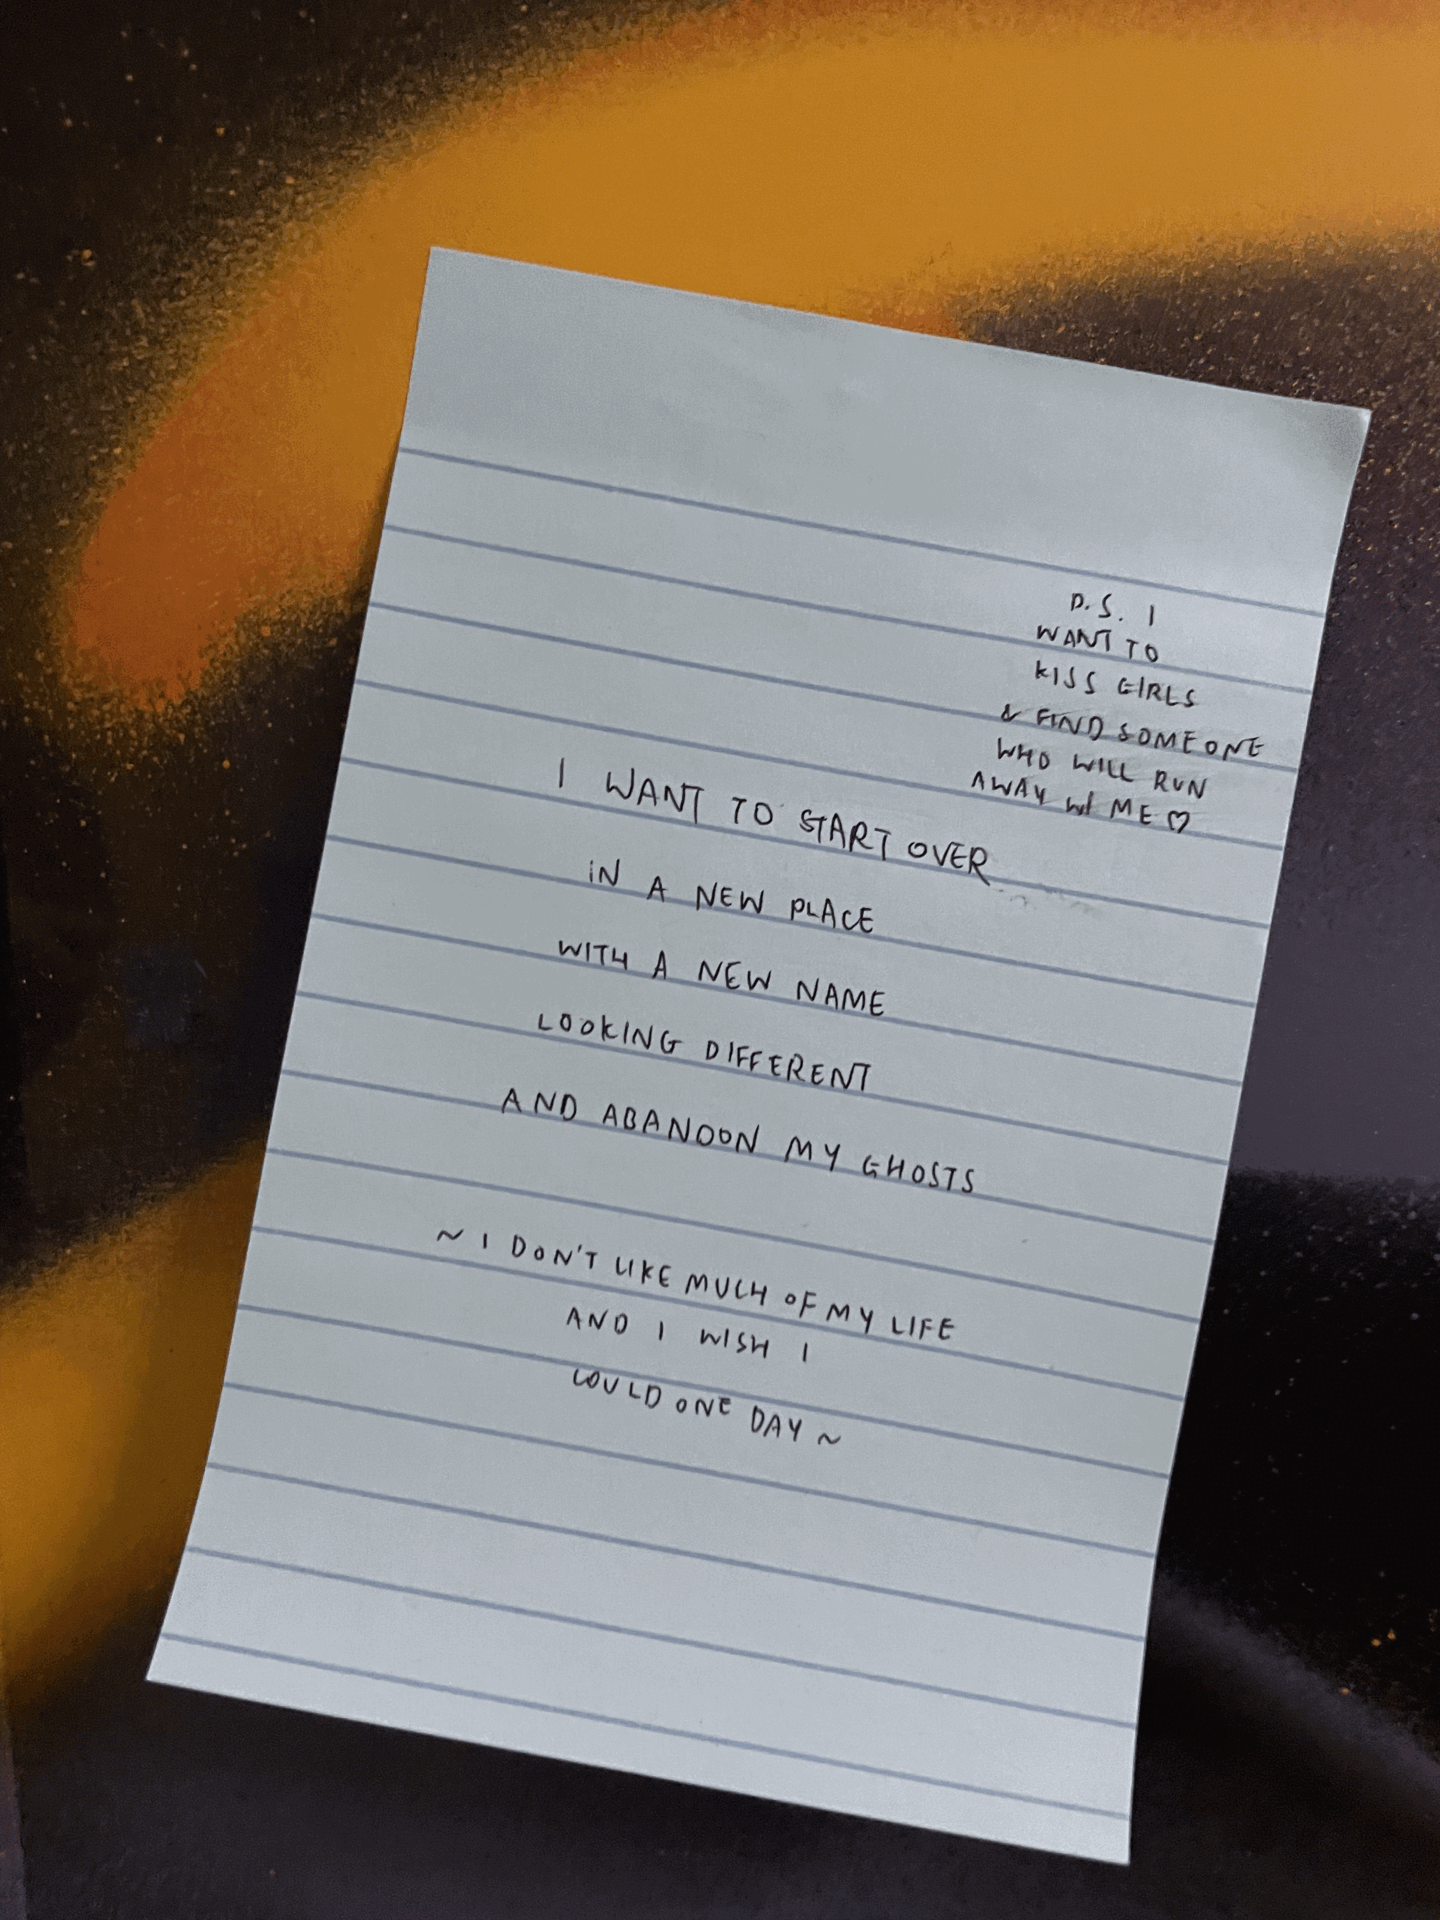 P.S. I
WANT TO
KISS GIRLS
& FIND SOMEONE
WHO WILL RUN
AWAY W/ ME ♡
I WANT TO START OVER
IN A NEW PLACE
WITH A NEW NAME
LOOKING DIFFERENT
AND ABANDON MY GHOSTS
~ I DON'T LIKE MUCH OF MY LIFE
AND I WISH I
COULD ONE DAY ~